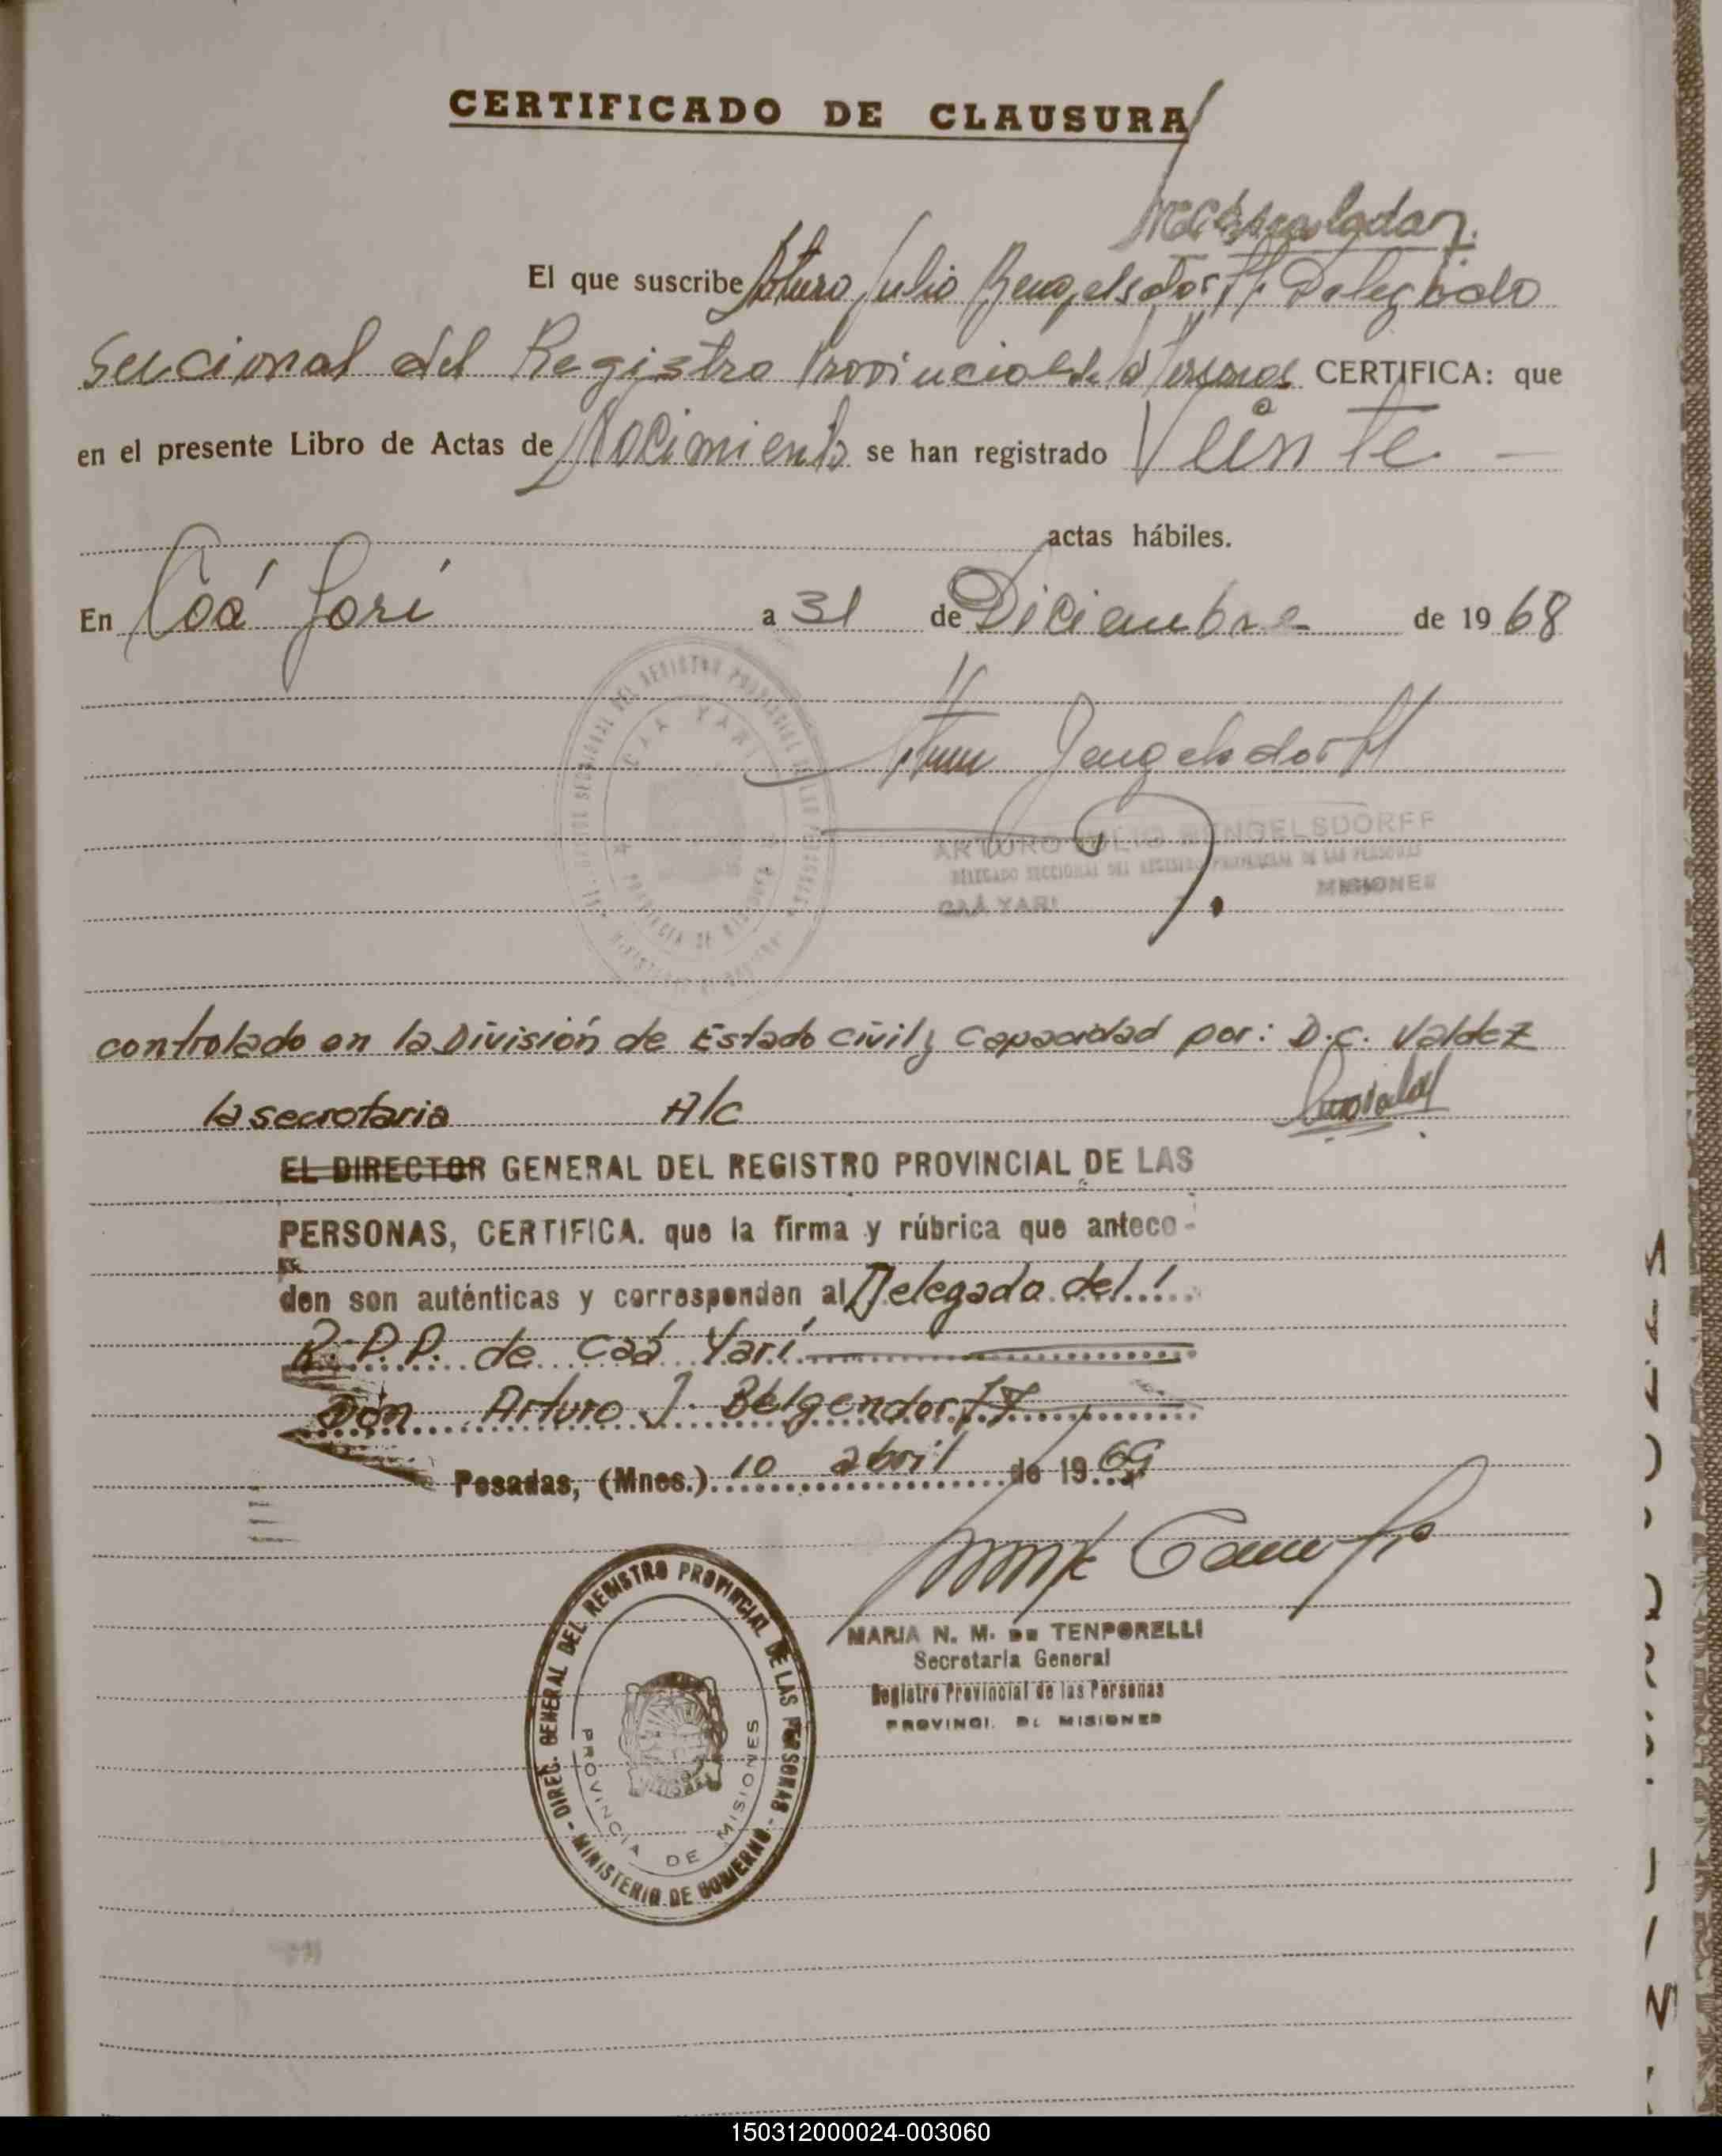 CERTIFICADO DE CLAUSURA
El que suscribe Arturo Julio Bengelsdorff Delegado
Seccional del Registro Provincial de las Personas CERTIFICA: que
en el presente Libro de Actas de Nacimiento se han registrado Veinte
actas hábiles.
En Caá Yarí a 31 de Diciembre de 1968
ARTURO JULIO BENGELSDORFF
DELEGADO SECCIONAL DEL REGISTRO PROVINCIAL DE LAS PERSONAS
CAÁ YARI MISIONES
controlado en la División de Estado civil y Capacidad por: D.C. Valdez
la secretaria A/c
EL DIRECTOR GENERAL DEL REGISTRO PROVINCIAL DE LAS
PERSONAS, CERTIFICA. que la firma y rúbrica que antece-
den son auténticas y corresponden al Delegado del
R.P.P. de Caá Yarí
Don Arturo J. Belgendorff
Posadas, (Mnes.) 10 abril de 1969
MARIA N. M. DE TENPORELLI
Secretaria General
Registro Provincial de las Personas
PROVINCI. DE MISIONES
DIREC. GENERAL DEL REGISTRO PROVINCIAL DE LAS PERSONAS - MINISTERIO DE GOBIERNO -
PROVINCIA DE MISIONES
150312000024-003060